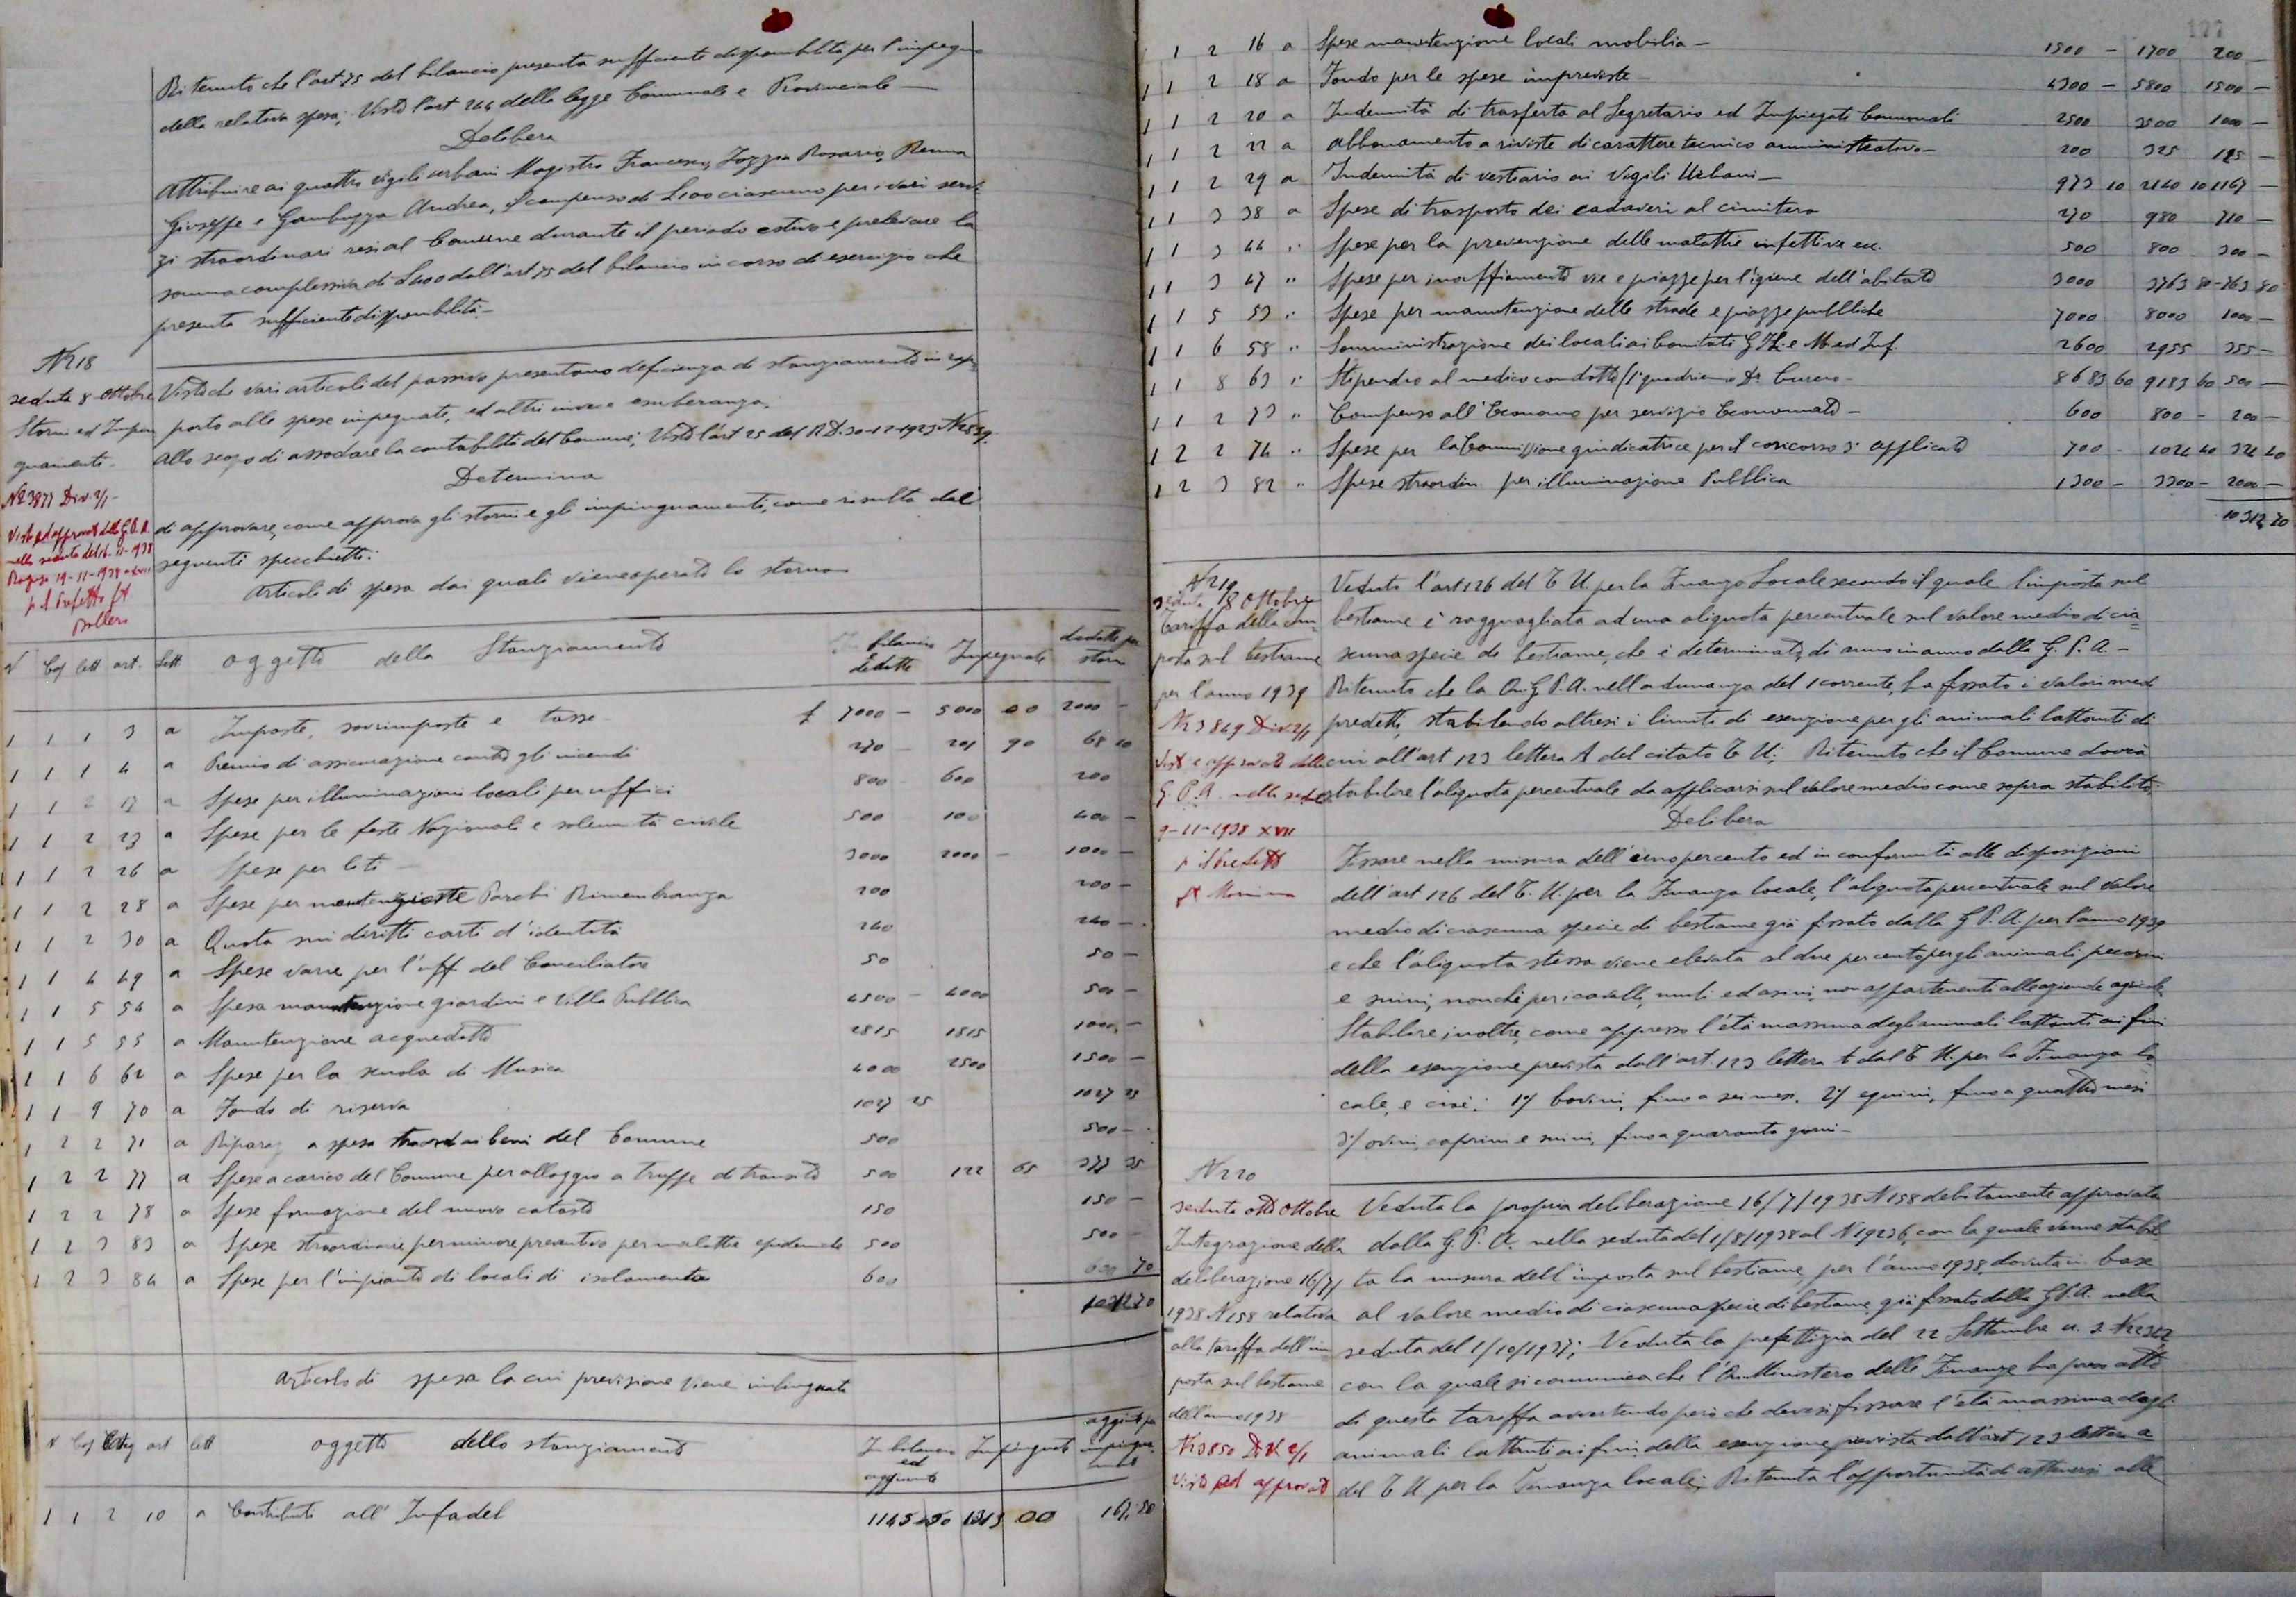 Ritenuto che l'art 75 del bilancio presenta sufficiente disponibilità per l'impegno
della relativa spesa; Visto l'art 264 della legge Comunale e Provinciale —
Delibera
Attribuire ai quattro vigili urbani Magistro Francesco, Rosario, Renna
Giuseppe e Gambuzza Andrea, il compenso di L 100 ciascuno per i vari servi-
zi straordinari resi al Comune durante il periodo estivo e prelevare la
somma complessiva di L 400 dall'art 75 del bilancio in corso di esercizio che
presenta sufficiente disponibilità.—
N 218
seduta 8 Ottobre
Storni ed Impin
guamenti.
N 23877 Div 2/1 -
Visto ed approvato dalla G.P.A.
nella seduta del 16-11-1938
Ragusa 19-11-1938 a XVII
p. il Prefetto ft
Visto che vari articoli del passivo presentano deficienza di stanziamento in rap-
porto alle spese impegnate, ed altri invece esuberanza.
Allo scopo di assodare la contabilità del Comune; Visto l'art 25 del R D. 30-12-1923 N 2839.
Determina
di approvare, come approva gli storni e gli impinguamenti, come risulta dai
seguenti specchietti:
Articoli di spesa dai quali viene operato lo storno
N Caf Catt art. Lett. Oggetto della Stanziamento In bilancio dedotte Impegnate dedotte per storno
1 1 1 3 a Imposte, sovrimposte e tasse - £ 7000 — 5000 00 2000 —
1 1 1 4 a Premio di assicurazione contro gli incendi 270 — 201 90 68 10
1 1 2 12 a Spese per illuminazioni locali per uffici 800 600 200
1 1 2 23 a Spese per le feste Nazionali e solennità civile 500 100 400 —
1 1 2 26 a Spese per liti — 3000 2000 — 1000 —
1 1 2 28 a Spese per manutenzione Parchi Rimembranza 200 200 —
1 1 2 30 a Quota sui diritti carti d'identità 240 240 —
1 1 4 49 a Spese varie per l'uff del Conciliatore 50 50 —
1 1 5 54 a Spesa manutenzione giardini e Villa Pubblica 4500 — 4000 500 —
1 1 5 55 a Manutenzione acquedotto 2815 1815 1000, —
1 1 6 62 a Spese per la scuola di Musica 4000 2500 1500 —
1 1 9 70 a Fondo di riserva 1027 25 1027 25
1 2 2 71 a Riparaz a spesa straord ai beni del Comune 500 500 —
1 2 2 77 a Spese a carico del Comune per alloggio a truppe di transito 500 122 65 377 35
1 2 2 78 a Spese formazione del nuovo catasto 150 150 —
1 2 3 83 a Spese straordinarie per misure preventive per malattie epidemiche 500 500 —
1 2 3 84 a Spese per l'impianto di locali di isolamento 600 600 70
10312 70
Articolo di spesa la cui previsione viene impinguata
N Caf Catteg art lett oggetto dello stanziamento In bilancio ed aggiunte Impinguate aggiunte per impingua mento
1 1 2 10 a Contributi all' Infadel 1145.50 1313.00 167.50
177
1 1 2 16 a Spese manutenzione locali mobilia — 1500 — 1700 200 —
1 1 2 18 a Fondo per le spese impreviste — 4300 — 5800 1500 —
1 1 2 20 a Indennità di trasferta al Segretario ed Impiegati Comunali 2500 3500 1000 —
1 1 2 22 a abbonamento a riviste di carattere tecnico amministrativo — 200 325 125 —
1 1 2 29 a Indennità di vestiario ai Vigili Urbani — 973 10 2140 10 1167 —
1 1 3 38 a Spese di trasporto dei cadaveri al cimitero 270 980 710 —
1 1 3 44 " Spese per la prevenzione delle malattie infettive ecc. 500 800 300 —
1 1 3 47 " Spese per innaffiamento vie e piazze per l'igiene dell'abitato 3000 3763 80 - 763 80
1 1 5 53 " Spese per manutenzione delle strade e piazze pubbliche 7000 8000 1000 —
1 1 6 58 " Somministrazione dei locali ai Comitati G.I.L. e M. ed Inf. 2600 2955 355 —
1 1 8 63 " Stipendio al medico condotto (1° quadriennio Dr Cureno — 8683 60 9183 60 500 —
1 1 2 73 " Compenso all'Economo per servizio Economato — 600 800 — 200 —
1 2 2 74 " Spese per la Commissione giudicatrice per il concorso di applicato 700 — 1024 40 324 40
1 2 3 82 " Spese straordin per illuminazione Pubblica 1300 — 3300 — 2000 —
10312,70
N 219
seduta 8 Ottobre
Tariffa della im-
posta sul bestiame
per l'anno 1939
N 23849 Div. 2/1
Visto e approvato dalla
G. P. A. nella seduta
9-11-1938 XVII
p. il Prefetto
ft
Veduto l'art 126 del T.U. per la Finanza Locale secondo il quale l'imposta sul
bestiame è ragguagliata ad una aliquota percentuale sul valore medio di cia-
scuna specie di bestiame, che è determinato, di anno in anno dalla G. P. A. —
Ritenuto che la On. G.P.A. nell'adunanza del 1 corrente, ha fissato i valori medi
predetti, stabilendo altresì i limiti di esenzione per gli animali lattanti di
cui all'art 123 lettera A del citato T.U.; Ritenuto che il Comune dovrà
stabilire l'aliquota percentuale da applicarsi sul valore medio come sopra stabilito.
Delibera
Fissare nella misura dell'uno percento ed in conformità alle disposizioni
dell'art 126 del T. U. per la Finanza locale, l'aliquota percentuale sul valore
medio di ciascuna specie di bestiame già fissato dalla G.P.A. per l'anno 1939
e che l'aliquota stessa viene elevata al due percento per gli animali pecorini
e suini, nonchè per i cavalli, muli ed asini, non appartenenti alle aziende agricole.
Stabilire, inoltre, come appresso l'età massima degli animali lattanti ai fini
della esenzione prevista dall'art. 123 lettera A dal T.U. per la Finanza lo-
cale, e cioè: 1°/ bovini, fino a sei mesi. 2°/ equini, fino a quattro mesi
3°/ ovini, caprini e suini, fino a quaranta giorni —
N 220
seduta otto Ottobre
Integrazione della
deliberazione 16/7/
1938 N 158 relativa
alla tariffa dell'im
posta sul bestiame
dell'anno 1938
N 23850 Div 2/1
Visto ed approvato
Veduta la propria deliberazione 16/7/1938 N 158 debitamente approvata
dalla G. P. A. nella seduta del 1/8/1938 al N 19236, con la quale venne stabili-
ta la misura dell'imposta sul bestiame, per l'anno 1938, dovuta in base
al valore medio di ciascuna specie di bestiame già fissato dalla G.P.A. nella
seduta del 1/10/1937; Veduta la prefettizia del 22 Settembre u. s.
con la quale si comunica che l'On. Ministero delle Finanze ha preso atto
di questa tariffa avvertendo però che devesi fissare l'età massima degli
animali lattanti ai fini della esenzione prevista dall'art 123 lettera a
del T.U. per la Finanza locale; Ritenuta l'opportunità di attenersi alle